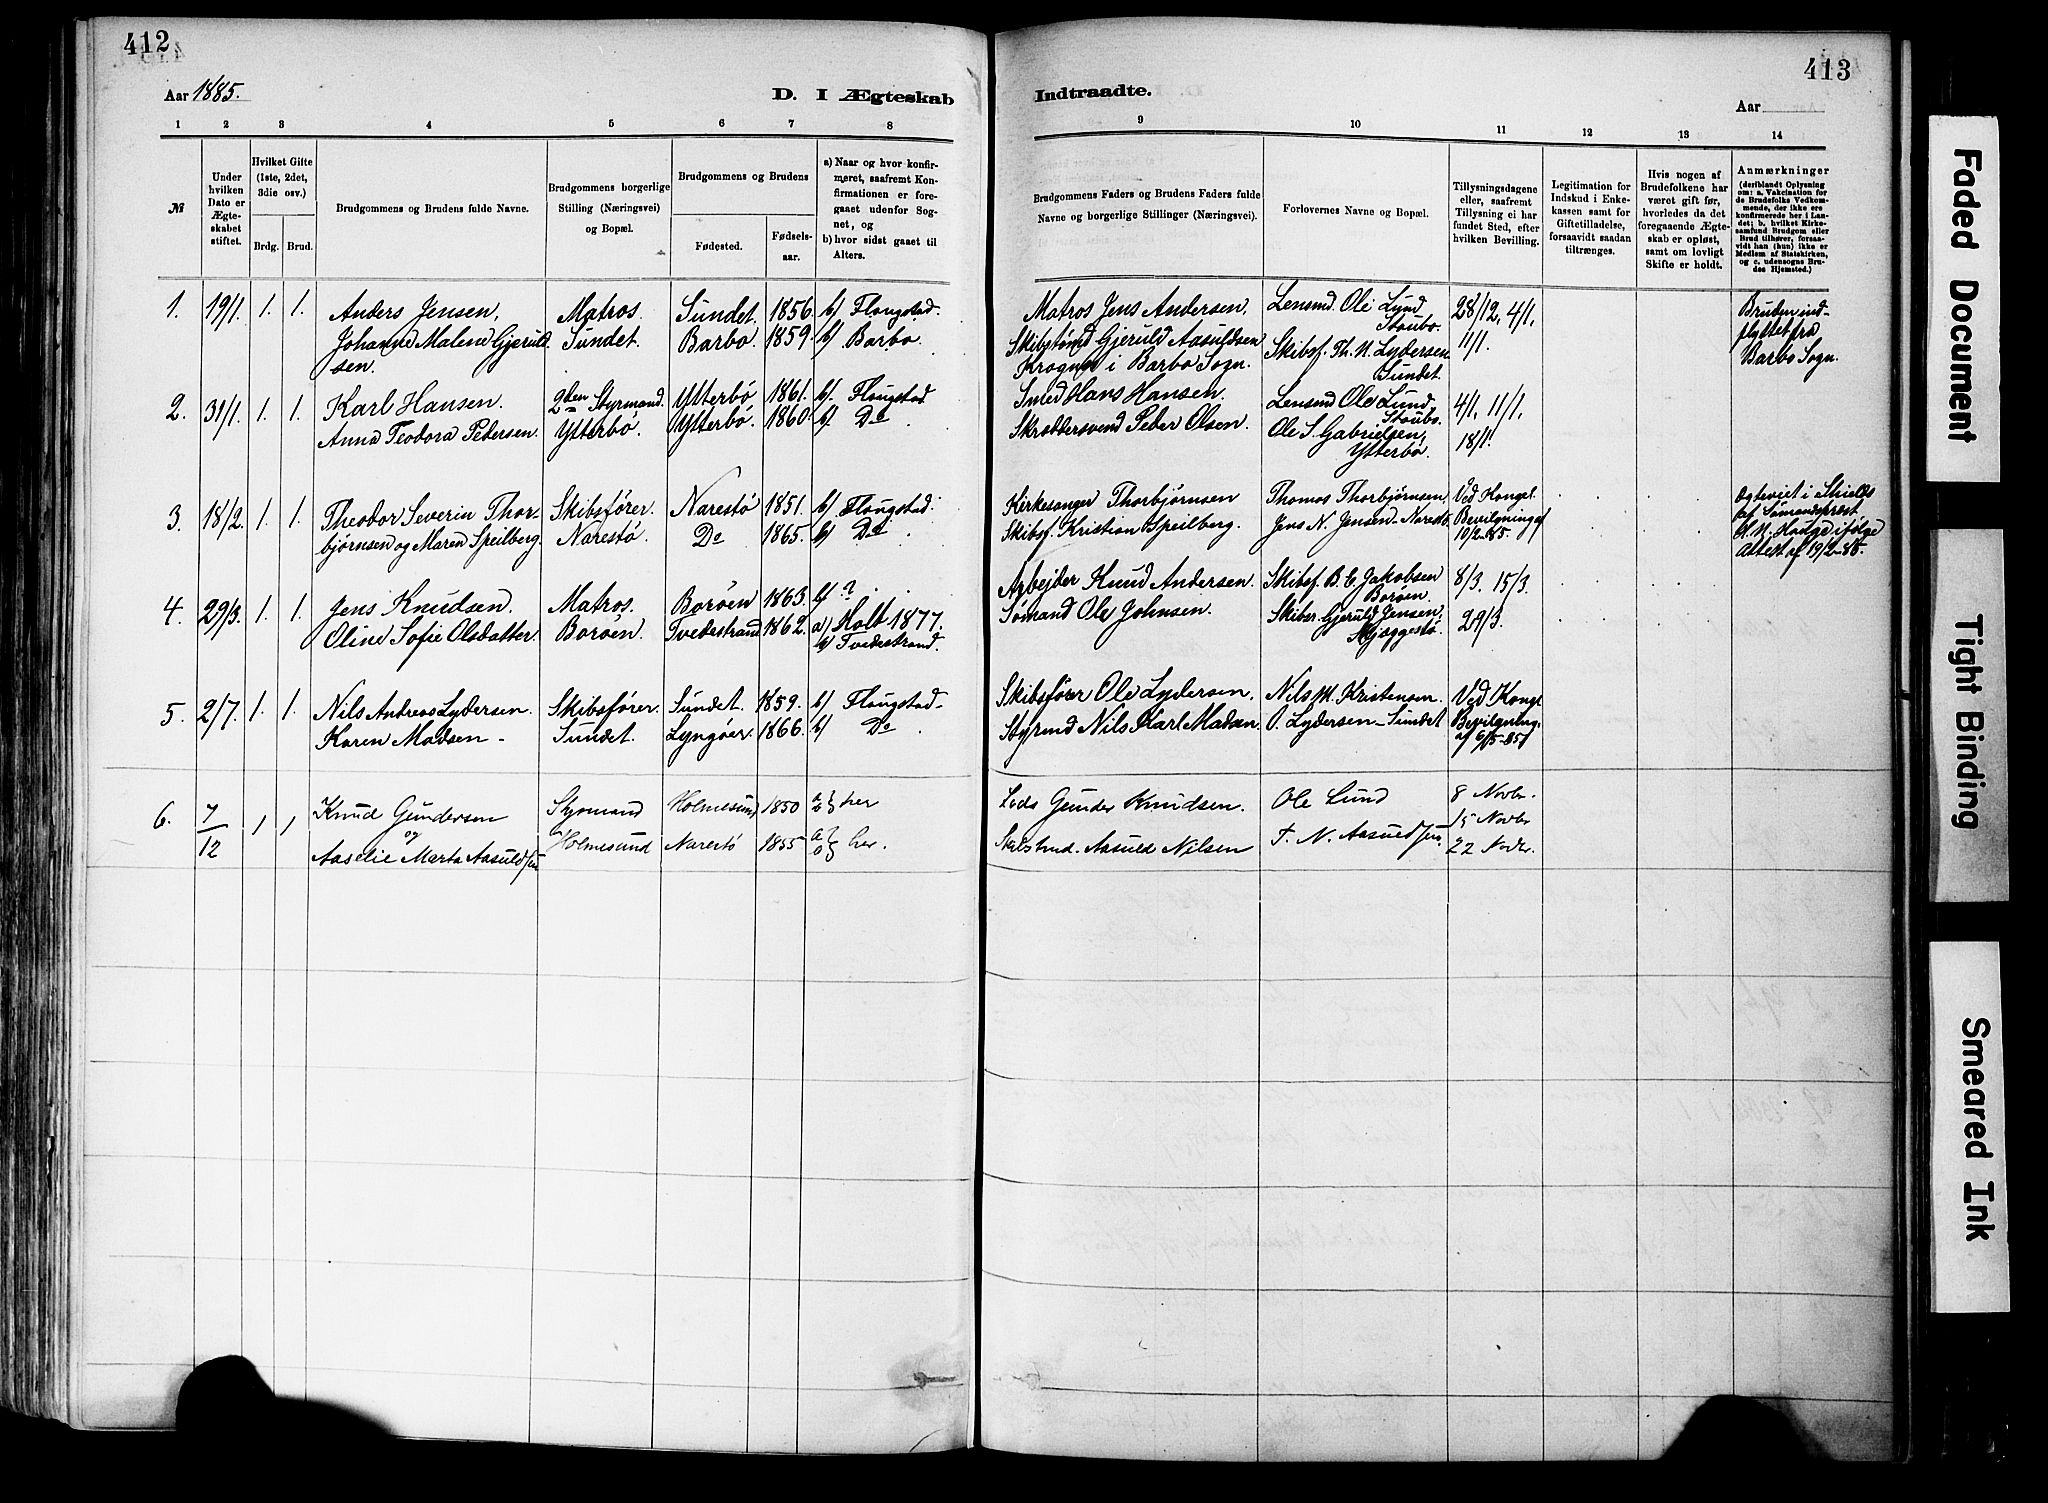 412
413
Aar 1885.
D. I Ægteskab
Indtraadte.
Aar
1 2 3 4 5 6 7 8
9 10 11 12 13 14
№
Under hvilken Dato er Ægteskabet stiftet.
Hvilket Gifte (1ste, 2det, 3die osv.)
Brdg. Brud.
Brudgommens og Brudens fulde Navne.
Brudgommens borgerlige Stilling (Næringsvei) og Bopæl.
Brudgommens og Brudens
Fødested.
Fødselsaar.
a) Naar og hvor konfirmeret, saafremt Konfirmationen er foregaaet udenfor Sognet, og
b) hvor sidst gaaet til Alters.
Brudgommens Faders og Brudens Faders fulde Navne og borgerlige Stillinger (Næringsvei).
Forlovernes Navne og Bopæl.
Tillysningsdagene eller, saafremt Tillysning ei har fundet Sted, efter hvilken Bevilling.
Legitimation for Indskud i Enkekassen samt for Giftetilladelse, forsaavidt saadan tiltrænges.
Hvis nogen af Brudefolkene har været gift før, hvorledes da det foregaaende Ægteskab er opløst, samt om lovligt Skifte er holdt.
Anmærkninger
(deriblandt Oplysning om: a. Vakcination for de Brudefolks Vedkommende, der ikke ere konfirmerede her i Landet; b. hvilket Kirkesamfund Brudgom eller Brud tilhører, forsaavidt han (hun) ikke er Medlem af Statskirken, og c. udensogns Brudes Hjemsted.)
1. 19/1. 1. 1. Anders Jensen, Matros. Sundet. 1856. b) Flougstad.
Johanne Malene Gjeruldsen. Sundet. Barbo. 1859. b) Barbo.
Matros Jens Andersen, Lensmd Ole Lund Stoubo. 28/12, 4/1, 11/1.
Skibstømd Gjeruld Aasuldsen Krogen i Barbo Sogn. Skibsf. Th. N. Lydersen Sundet.
Bruden indflyttet fra Barbo Sogn.
2. 31/1. 1. 1. Karl Hansen. 2den Styrmand. Ytterbö 1861. b). Flougstad.
Anna Teodora Pedersen. Ytterbö. Ytterbö. 1860. b). Do
Smed Hans Hansen. Lensmd Ole Lund Stoubo. 4/1, 11/1,
Skræddersvend Peder Olsen. Ole S. Gabrielsen, Ytterbö. 18/1.
3. 18/2. 1. 1. Theodor Severin Thorbjørnsen og Maren Speilberg. Skibsförer. Narestö. Narestö 1851. b) Flougstad.
Do 1865. b) Do
Kirkesanger Thorbjørnsen Thomas Thorbjørnsen, Ved Kongel.
Skibsf. Kristian Speilberg. Jens N. Jensen - Narestö. Bevilgning af 10/2-85.
Ægteviet i Shields af Sömandspræst ifølge Attest af 19/2-85.
4. 29/3. 1. 1. Jens Knudsen. Matros. Boröen 1863. b) ?
Oline Sofie Olsdatter. Boröen. Tvedestrand 1862. a) Holt 1877. b) Tvedestrand.
Arbejder Knud Andersen. Skibsf. B. C. Jakobsen Boröen. 8/3. 15/3.
Sömand Ole Johnsen. Skibsr. Gjeruld Jensen, 29/3.
5. 2/7. 1. 1. Nils Andreas Lydersen. Skibsförer. Sundet. 1859. b) Flougstad-
Karen Madsen - Sundet. Lyngöer. 1866. b) Do
Skibsförer Ole Lydersen. Nils M. Kristensen. Ved Kongl.
Styrmd Nils Karl Madsen. O. Lydersen - Sundet Bevilgning. af 6/5-85
6. 7/12 1 1 Knud Gundersen Styrmand Holmesund 1850 a} b} her
og
Aaselie Marta Aasuldsen Holmesund Narestö 1855 a} b} her.
Lods Gunder Knudsen. Ole Lund 8 Novbr.
15 Novbr
Aasuld Nilsen T. N. Aasuldsen. 22 Novbr.
Faded Document
Tight Binding
Smeared Ink